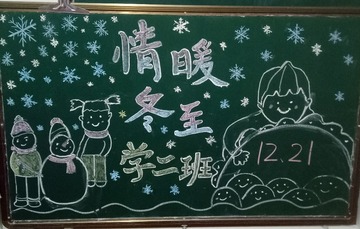 情暖
冬至
学二班
12.21